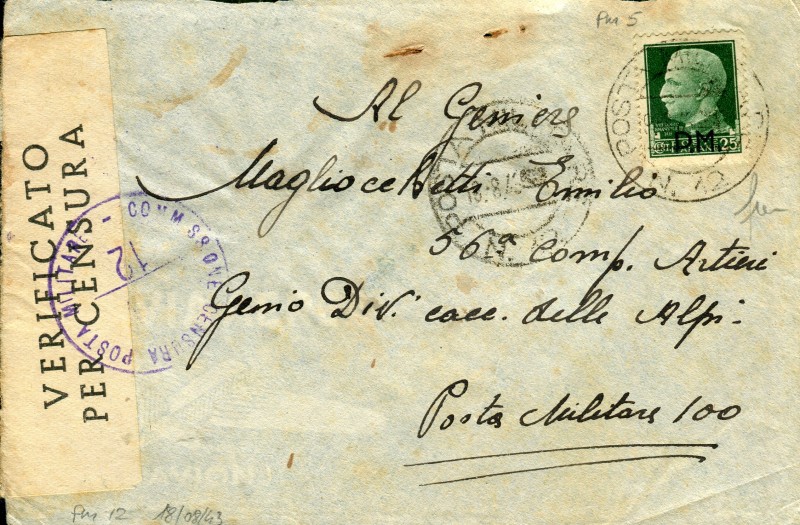 Pm 5
P.M.
25
Al Geniere
Magliocchetti Emilio
56ª Comp. Artieri
Genio Div. cacc. delle Alpi.
Posta Militare 100
VERIFICATO
PER CENSURA
COMMISSIONE CENSURA POSTA MILITARE
12
POSTA MILITARE
N. 12
POSTA
N. 12
Pm 12 18/08/43